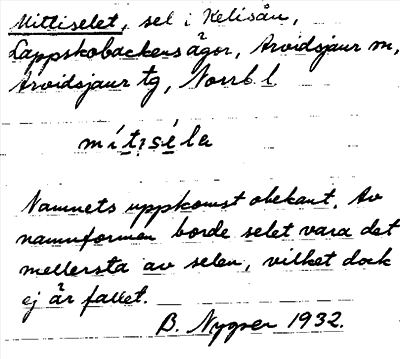 Mittiselet, sel i Kelisån,
Lappskobackens ägor, Arvidsjaur m,
Arvidsjaur tg, Norrb. l.
mítiséla
Namnets uppkomst obekant. Av
namnformen borde selet vara det
mellersta av selen, vilket dock
ej är fallet.
B. Nygren 1932.